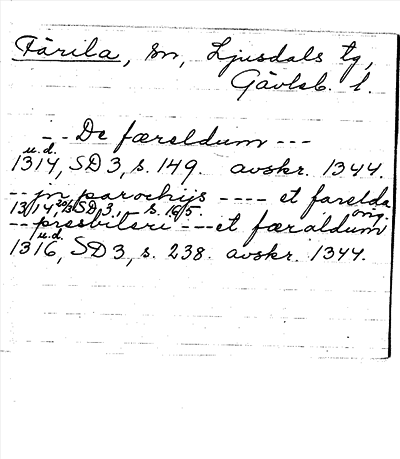 Färila, sn, Ljusdals tg,
Gävleb. l.
-- De færeldum ---
u.d.
1314, SD 3, s. 149. avskr. 1344.
-- jn parochijs ---- et farelda
1314 20/3 SD 3, s. 165. orig.
-- presbiteri --- et færaldum
u.d.
1316, SD 3, s. 238. avskr. 1344.